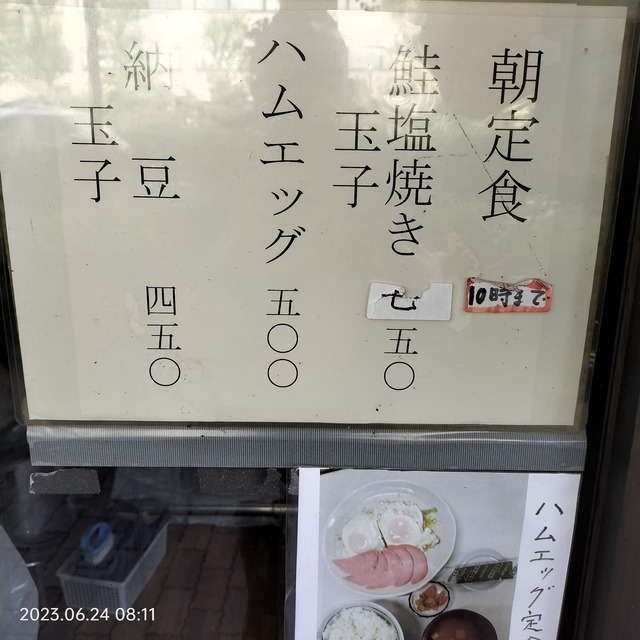 朝定食
10時まで
鮭塩焼き
玉子
七五〇
ハムエッグ
五〇〇
納豆
玉子
四五〇
ハムエッグ定
2023.06.24 08:11